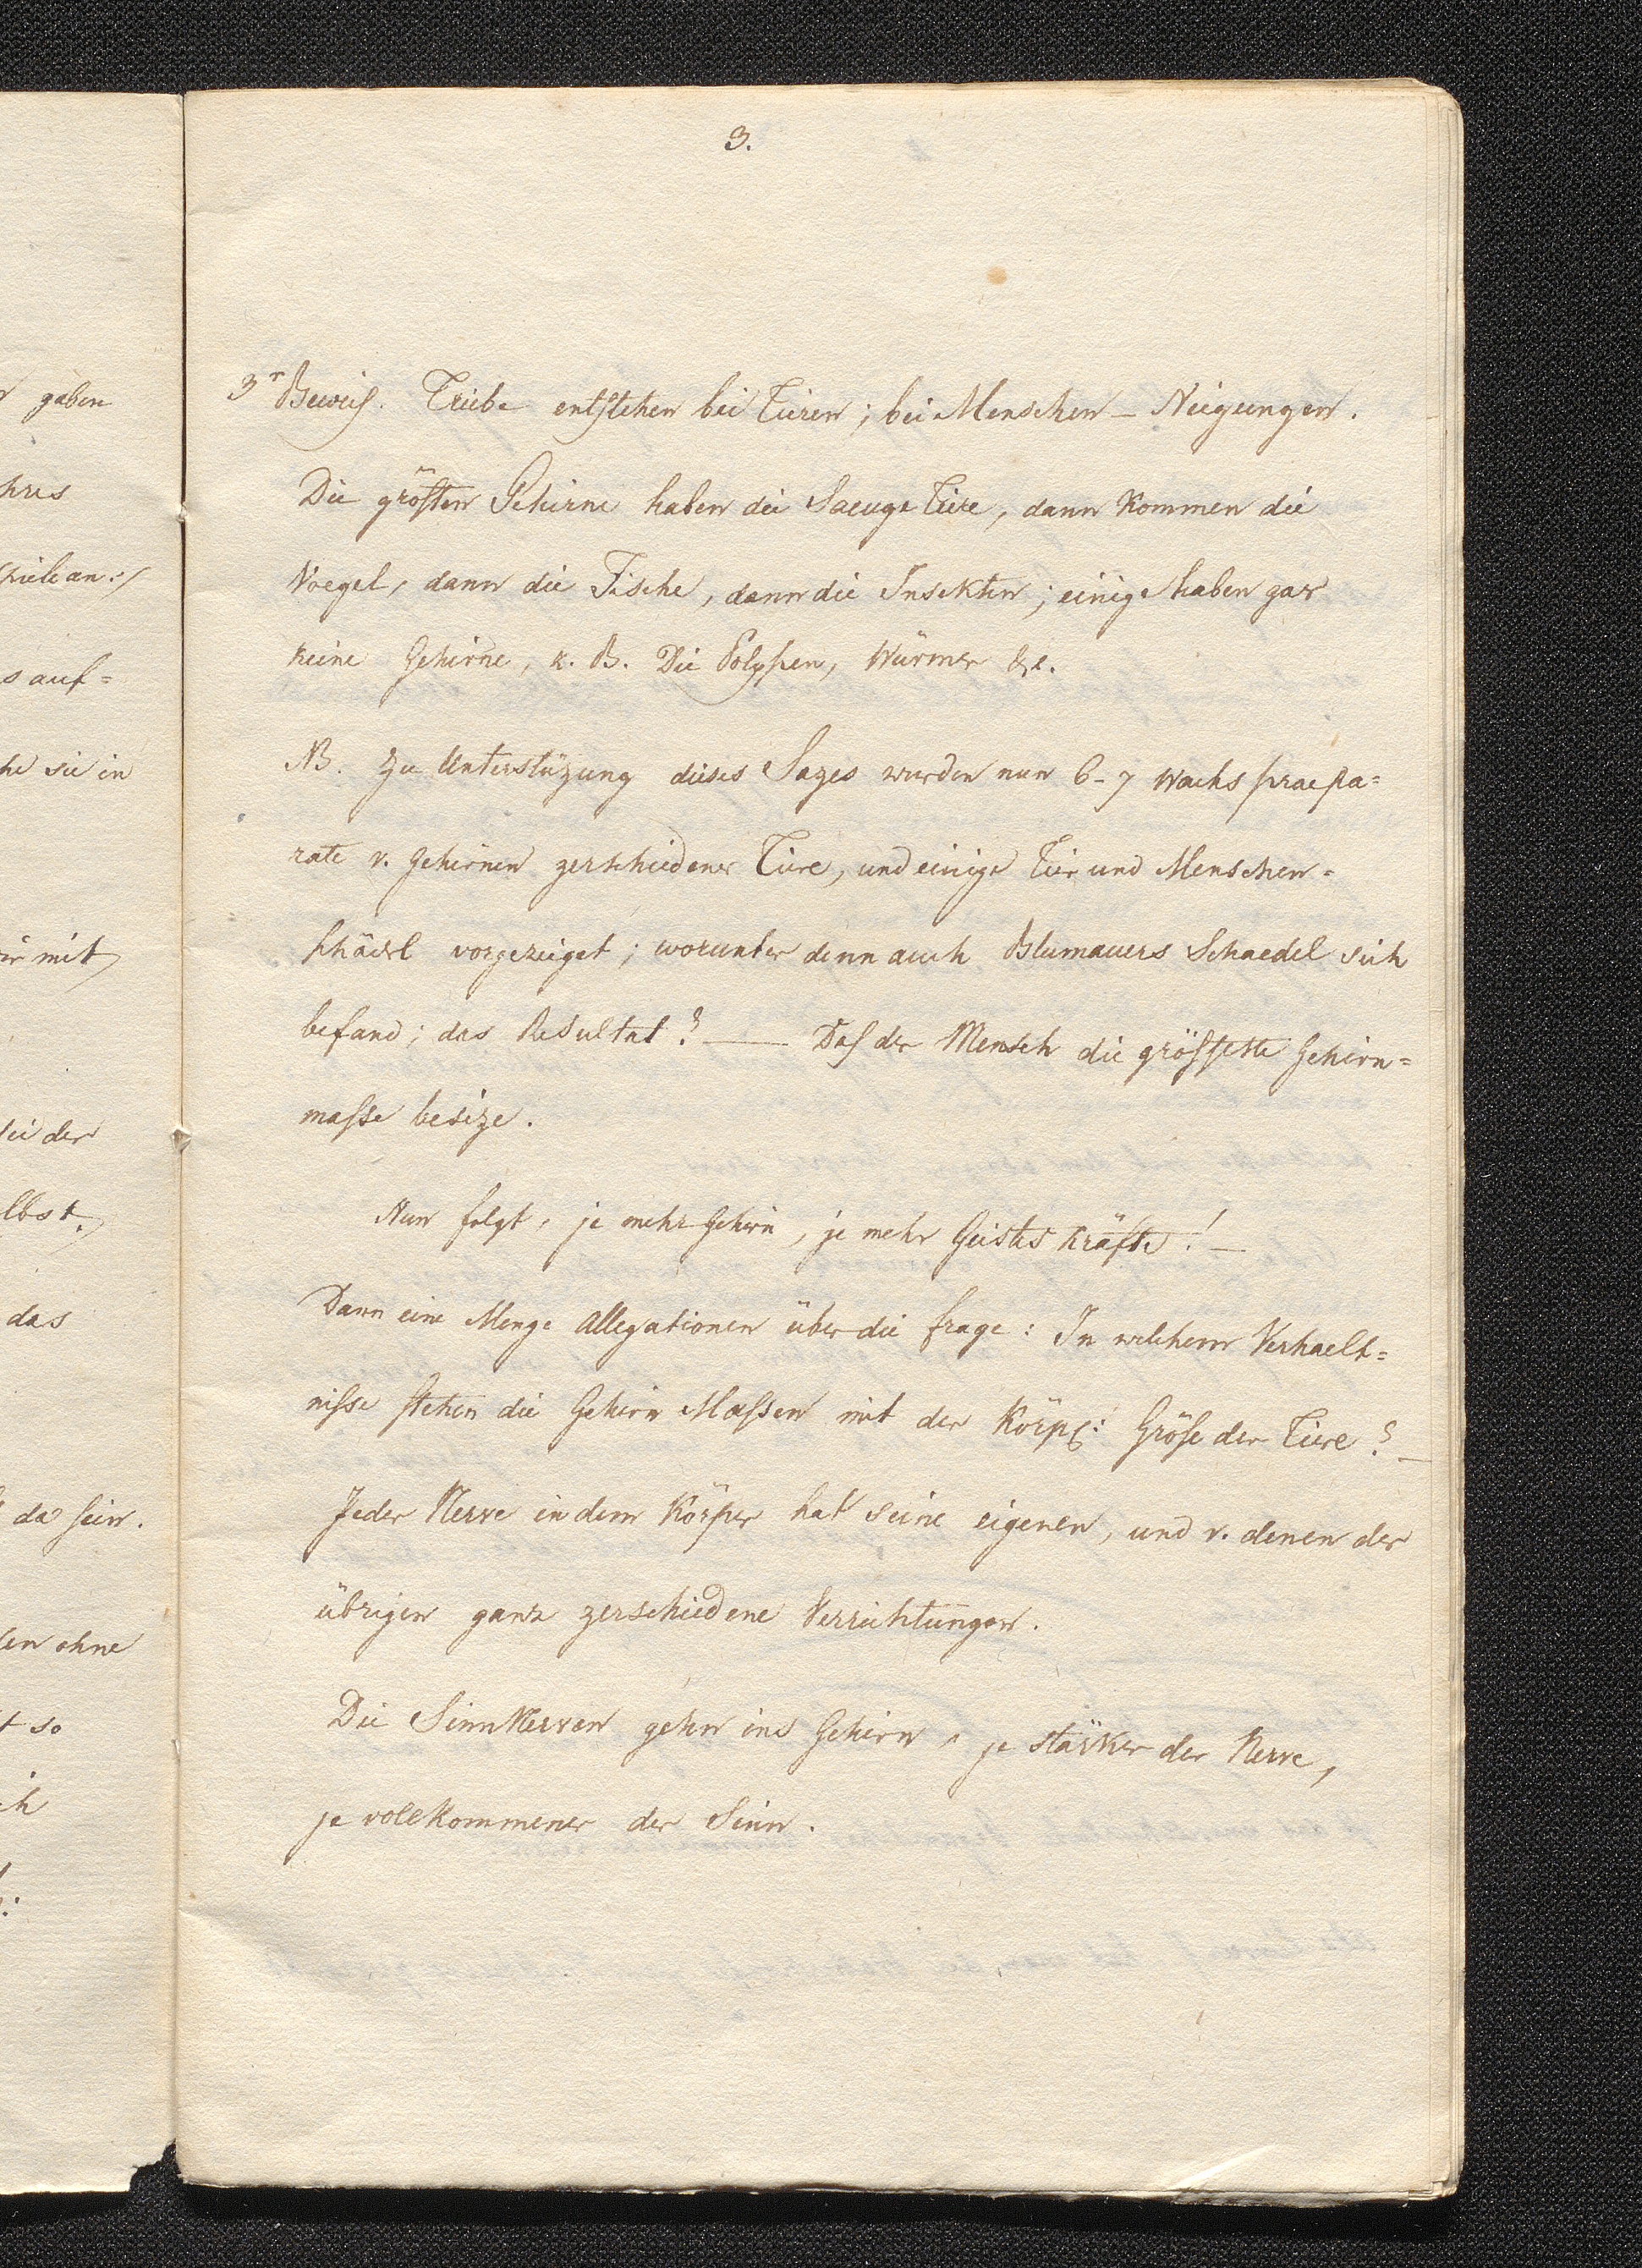 3.
3r Beweis. Triebe entstehen bei Tieren; bei Menschen – Neigungen.
Die größten Gehirne haben die Saeuge Tiere, dann kommen die
Voegel, dann die Fische, dann die Insekten; einige haben gar
keine Gehirne, z. B. Die Polypen, Würmer &c.
NB. Zu Unterstüzung dieses Sazes wurden nun 6-7 Wachs praepa=
rate v. Gehirnen zerschiedener Tiere, und einige Tier und Menschen=
schädl vorgezeiget; worunter denn auch Blumauers Schaedel sich
befand; das Resultat? — Daß der Mensch die größeste Gehirn=
maße besize.
Nun folgt, je mehr Gehirn, je mehr Geistes kräfte! –
Dann eine Menge Allegationen über die frage: In welchem Verhaelt=
niße stehen die Gehirn Maßen mit der Körper: Größe der Tiere? –
Jeder Nerve in dem Körper hat seine eigenen, und v. denen der
übrigen ganz zerschiedene Verrichtungen.
Die Sinn Nerven gehn ins Gehirn, je stärker der Nerve,
je vollkommener der Sinn.
gaben
s auf=
he sie in
mit
der
lbst.
das
da sein.
ohne
so